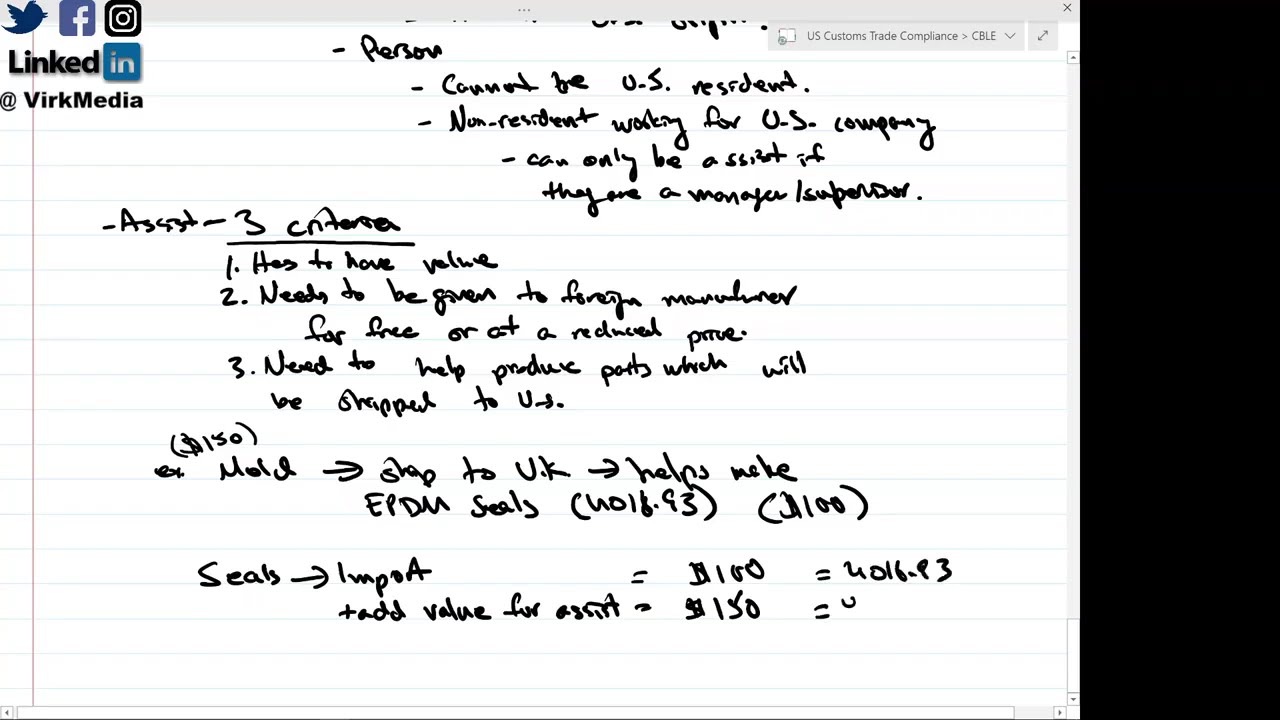 US Customs Trade Compliance > CBLE
Linked in
@ VirkMedia
- Person
- Cannot be U.S. resident.
- Non-resident working for U.S. company
- can only be assist if
they are a manager/supervisor.
- Assist - 3 criteria
1. Has to have value
2. Needs to be given to foreign
for free or at a reduced price.
3. Need to help produce parts which will
be shipped to U.S.
($150)
ex. Mold → ship to UK → helps make
EPDM Seals (4016.93) ($100)
Seals → Import = $100 = 4016.93
+add value for assist = $150 =